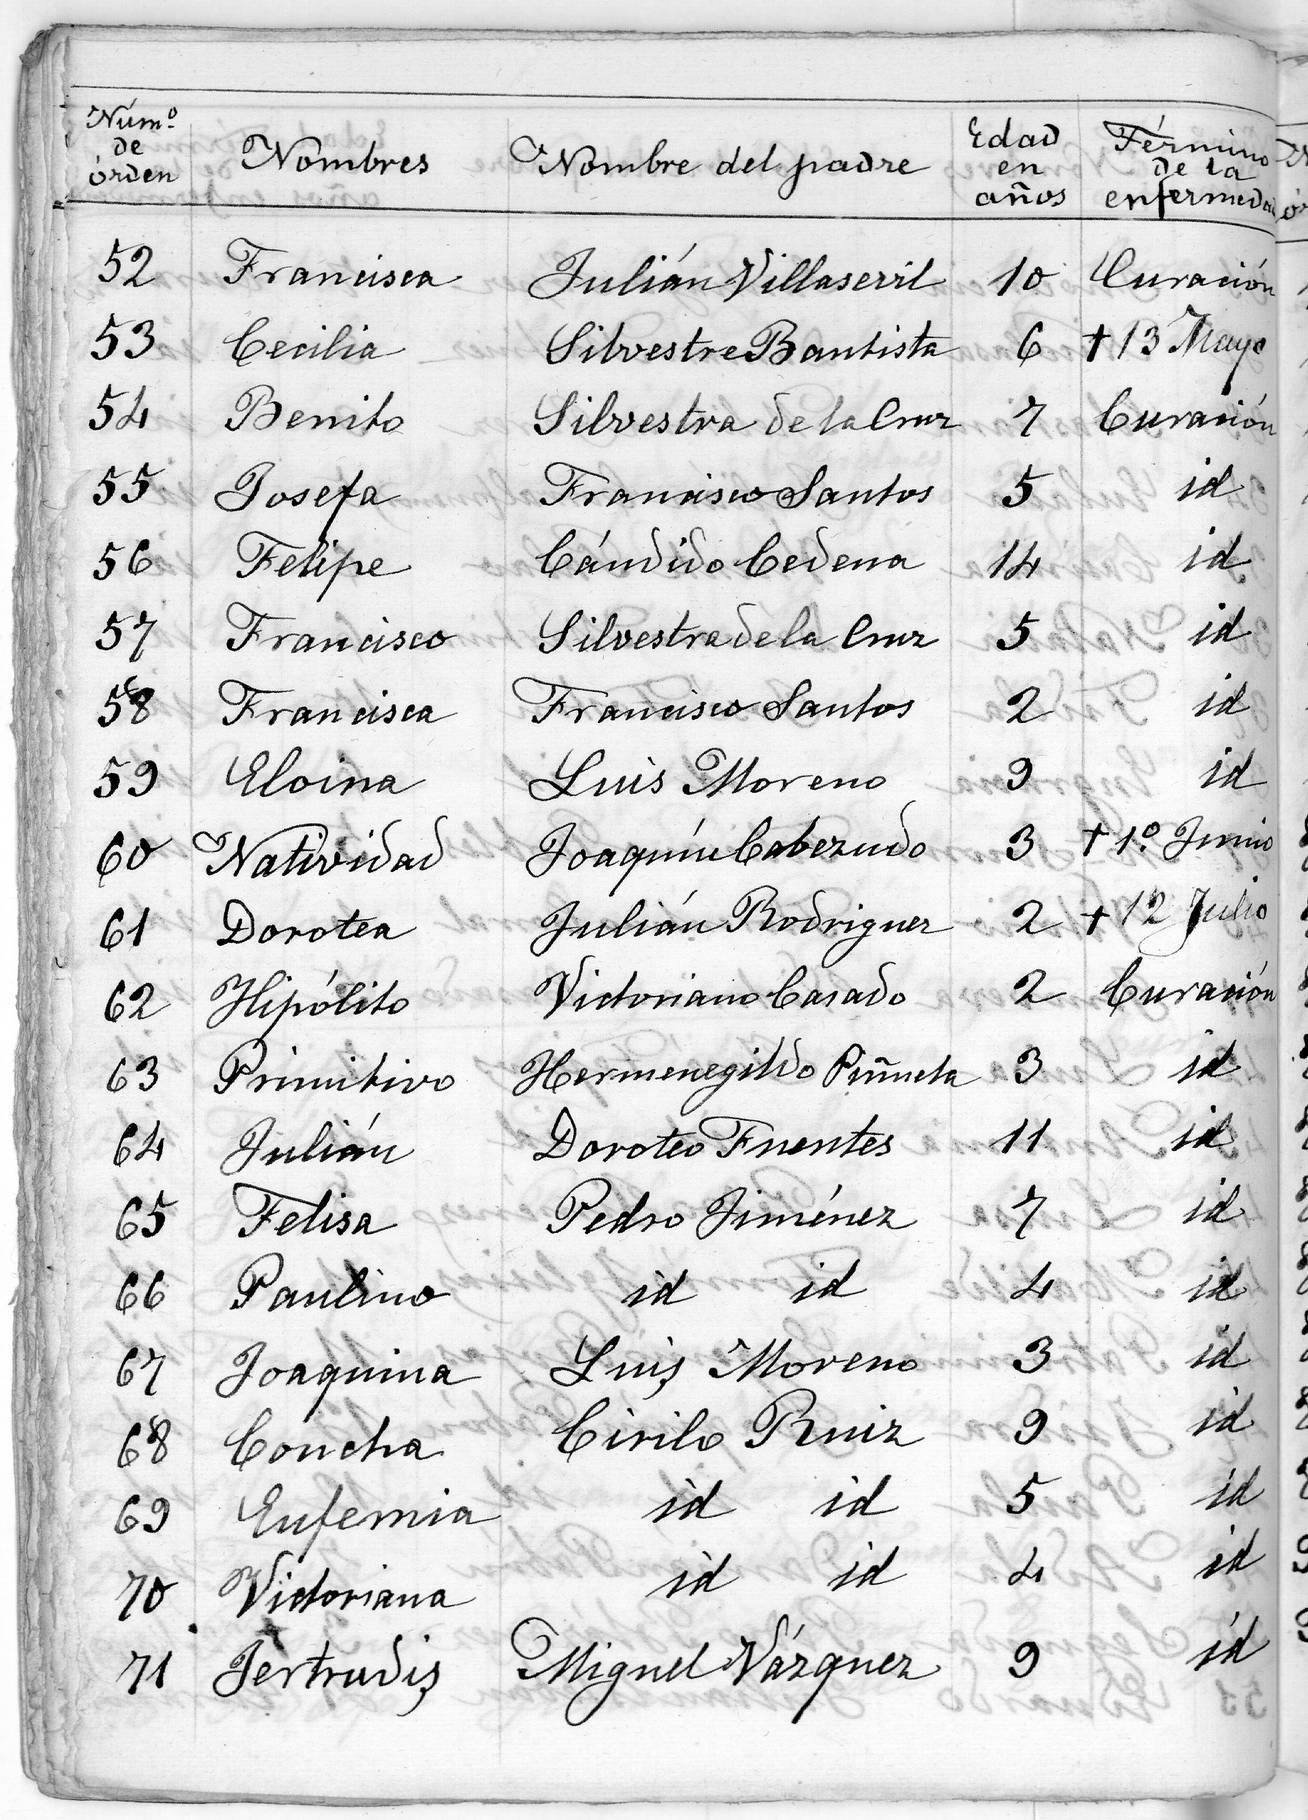 Núm.º de órden Nombres Nombre del padre Edad en años Término de la enfermedad
52 Francisca Julián Villaseril 10 Curación
53 Cecilia Silvestre Bautista 6 † 13 Mayo
54 Benito Silvestra de la Cruz 7 Curación
55 Josefa Francisco Santos 5 id
56 Felipe Cándido Cedena 14 id
57 Francisco Silvestra de la Cruz 5 id
58 Francisca Francisco Santos 2 id
59 Eloina Luis Moreno 9 id
60 Natividad Joaquín Cabezudo 3 † 1º Junio
61 Dorotea Julián Rodriguez 2 † 12 Julio
62 Hipólito Victoriano Casado 2 Curación
63 Primitivo Hermenegildo 3 id
64 Julián Doroteo Fuentes 11 id
65 Felisa Pedro Jiménez 7 id
66 Paulino id id 4 id
67 Joaquina Luis Moreno 3 id
68 Concha Cirilo Ruiz 9 id
69 Eufemia id id 5 id
70 Victoriana id id 4 id
71 Jertrudis Miguel Vázquez 9 id